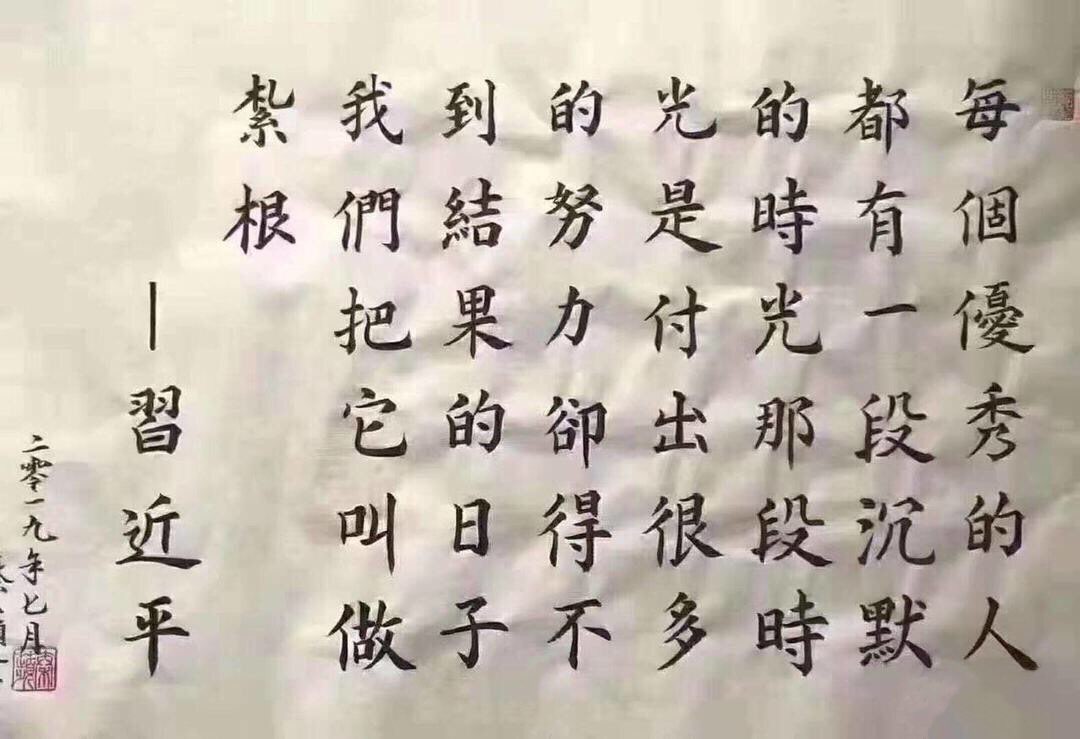 每個優秀的人
都有一段沉默
的時光那段時
光是付出很多
的努力卻得不
到結果的日子
我們把它叫做
紮根
—習近平
二零一九年七月